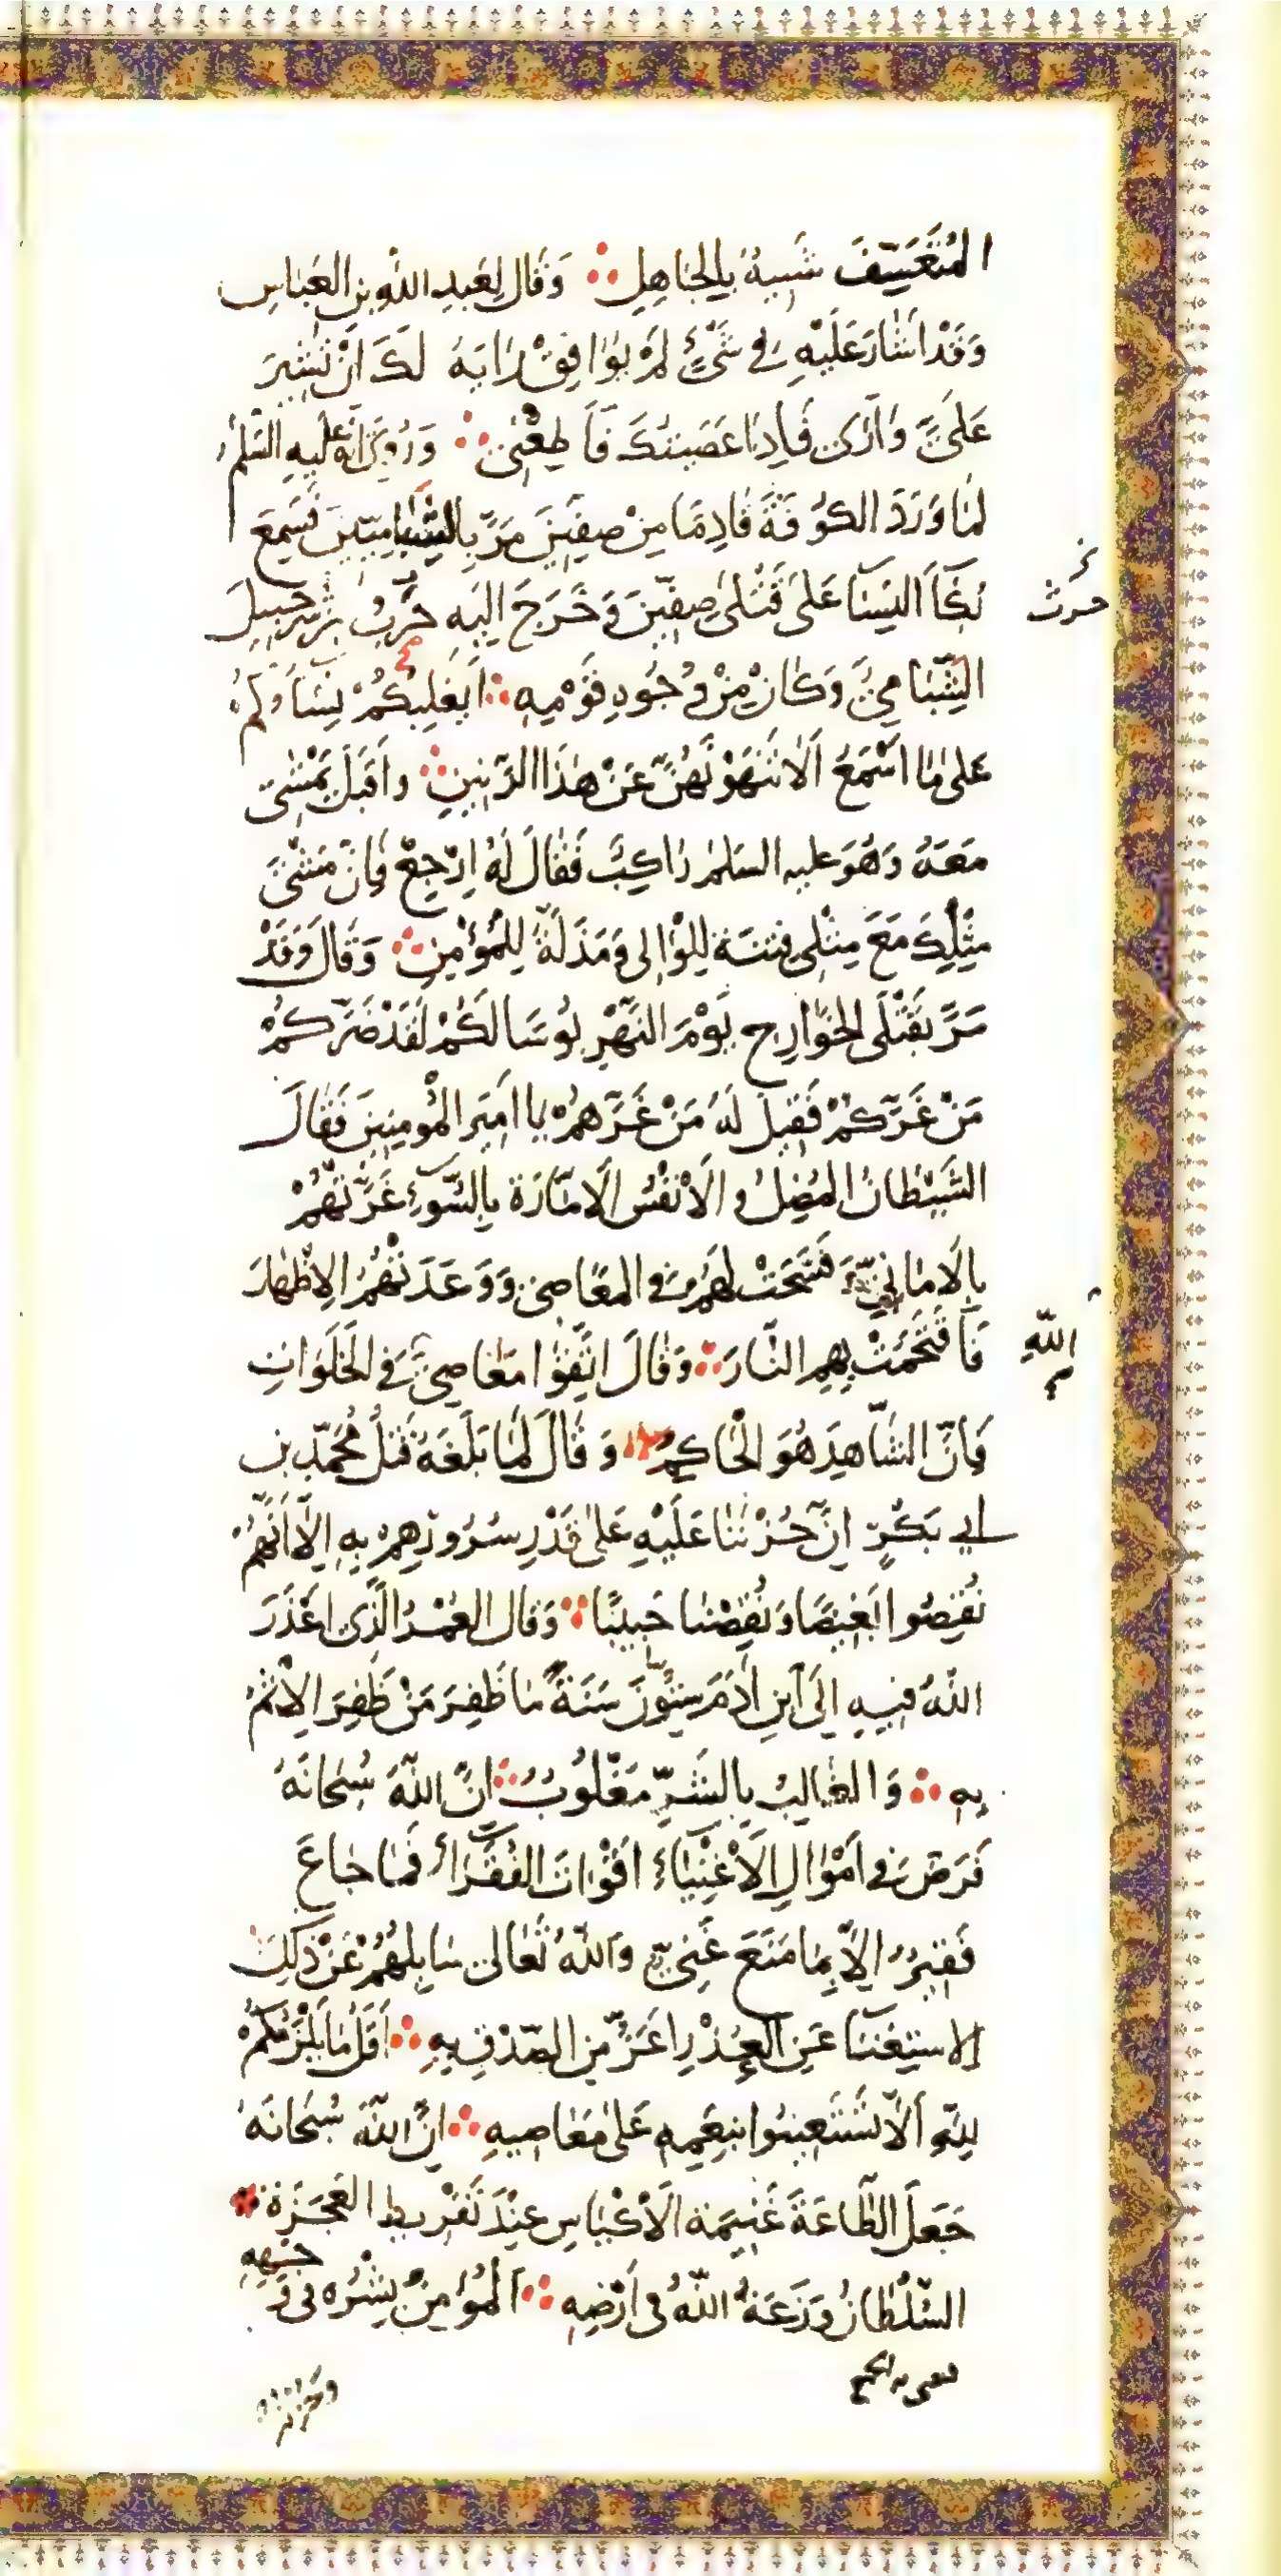 المُتَعَسِّفَ شَبِيهٌ بِالجَاهِلِ وَقَالَ لِعَبدِ اللهِ بنِ العَبَّاسِ
وَقَدْ اَشَارَ عَلَيْهِ فِي شَيْءٍ لَمْ يُوَافِقْ رَايَهُ لَكَ اَنْ تُشِيرَ
عَلَيَّ وَاَرَىٰ فَاِذَا عَصَيتُكَ فَاَطِعْنِي وَرُوِيَ اَنَّهُ عَلَيهِ السَّلَمُ
لَمَّا وَرَدَ الكُوفَةَ قَادِمًا مِنْ صِفِّينَ مَرَّ بِالشِّبَامِيِّينَ فَسَمِعَ
بُكَآءَ النِّسَآءِ عَلَى قَتْلَى صِفِّينَ وَخَرَجَ اِلَيهِ حَرْبُ بْنُ شُرَحبِيلَ
حرث
الشِّبَامِيُّ وَكَانَ مِنْ وُجُوهِ قَوْمِهِ اَيَغلِبُكُمْ نِسَاؤُكُمْ
عَلَى مَا اَسْمَعُ اَلَا تَنْهَوْنَهُنَّ عَنْ هَذَا الرَّنِينِ وَاَقبَلَ يَمْشِي
مَعَهُ وَهُوَ عليه السلم رَاكِبٌ فَقَالَ لَهُ اِرْجِعْ فَاِنَّ مَشْيَ
مِثْلِكَ مَعَ مِثْلِي فِتنَةٌ لِلْوَالِي وَمَذَلَّةٌ لِلْمُؤْمِنِ وَقَالَ وَقَدْ
مَرَّ بِقَتْلَى الخَوَارِجِ يَوْمَ النَّهْرِ بُوسًا لَكُمْ لَقَدْ ضَرَّكُمْ
مَنْ غَرَّكُمْ فَقِيلَ لَهُ مَنْ غَرَّهُمْ يَا اَمِيرَ المُؤْمِنِينَ فَقَالَ
الشَّيْطَانُ المُضِلُّ وَالاَنْفُسُ الاَمَّارَةُ بِالسُّوءِ غَرَّتْهُمْ
بِالاَمَانِيِّ وَفَسَحَتْ لَهُمْ فِي المَعَاصِي وَوَعَدَتْهُمُ الاِظْهَارَ
فَاقْتَحَمَتْ بِهِمِ النَّارَ وَقَالَ اتَّقُوا مَعَاصِيَ فِي الخَلَوَاتِ
اللّٰهِ
فَاِنَّ الشَّاهِدَ هُوَ الْحَاكِمُ وَقَالَ لَمَّا بَلَغَهُ قَتْلُ مُحَمَّدِ بنِ
اَبِي بَكْرٍ اِنَّ حُزْنَنَا عَلَيْهِ عَلَى قَدْرِ سُرُورِهِمْ بِهِ اِلَّا اَنَّهُمْ
نُقِصُوا بَغِيضًا وَنُقِصْنَا حَبِيبًا وَقَالَ العُمْرُ الَّذِي اَعْذَرَ
اللّٰهُ فِيهِ اِلَى ابنِ اٰدَمَ سِتُّونَ سَنَةً مَا ظَفِرَ مَنْ ظَفِرَ الاِثْمُ
بِهِ وَالغَالِبُ بِالشَّرِّ مَغْلُوبٌ اِنَّ اللّٰهَ سُبْحَانَهُ
فَرَضَ فِي اَمْوَالِ الاَغْنِيَاءِ اَقْوَاتَ الفُقَرَآءِ فَمَا جَاعَ
فَقِيرٌ اِلَّا بِمَا مَنَعَ غَنِيٌّ وَاللّٰهُ تَعَالَى سَايِلُهُمْ عَنْ ذَلِكَ
الاِستِغنَآءُ عَنِ العُذْرِ اَعَزُّ مِنَ الصِّدْقِ بِهِ اَقَلُّ مَا يَلْزَمُكُمْ
لِلّٰهِ اَلَّا تَسْتَعِينُوا بِنِعَمِهِ عَلَى مَعَاصِيهِ اِنَّ اللّٰهَ سُبْحَانَهُ
جَعَلَ الطَّاعَةَ غَنِيمَةَ الاَكْيَاسِ عِنْدَ تَفْرِيطِ العَجَزَةِ
السُّلْطَانُ وَزَعَةُ اللّٰهِ فِي اَرْضِهِ اَلمُؤْمِنُ بِشْرُهُ فِي وَجْهِهِ
وَحُزْنُهُ